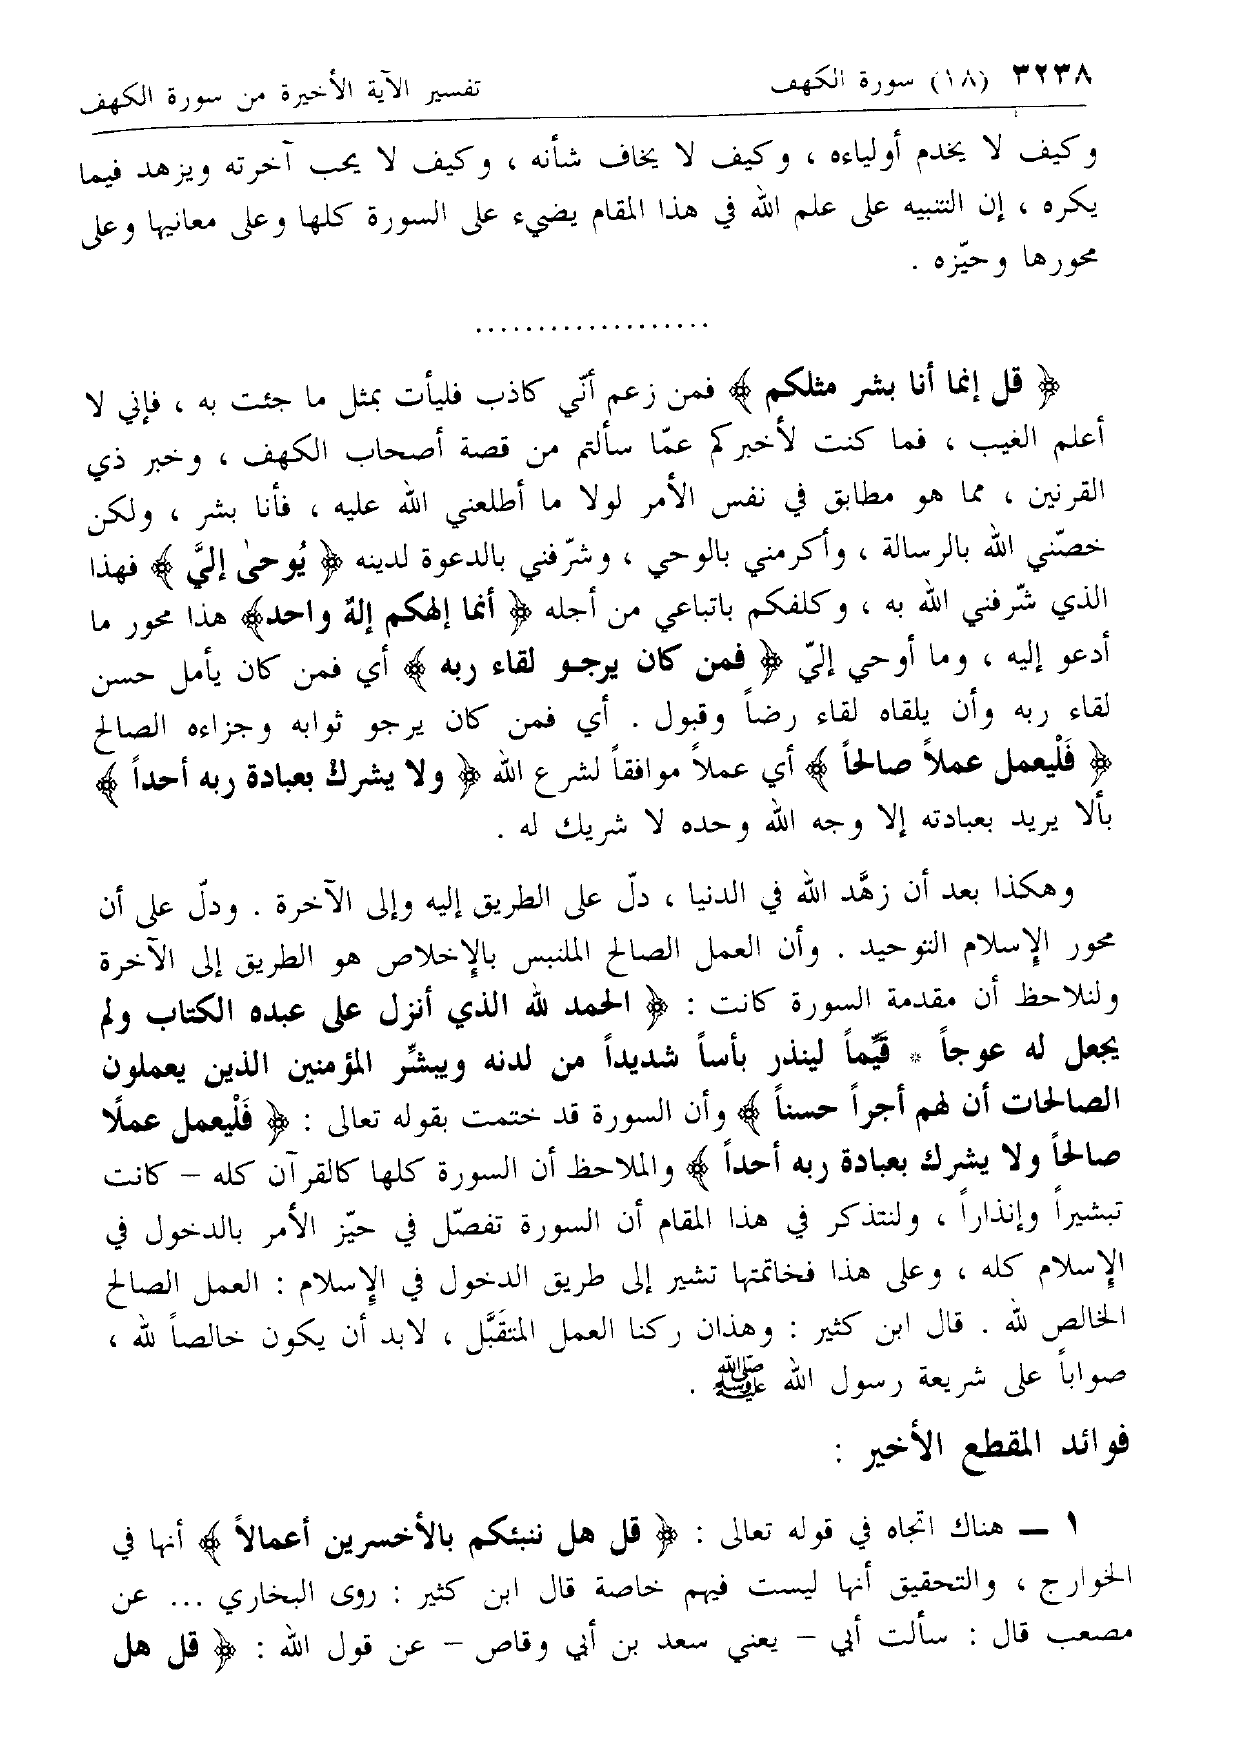 ٣٢٣٨ (١٨) سورة الكهف تفسير الآية الأخيرة من سورة الكهف
وكيف لا يخدم أولياءه ، وكيف لا يخاف شأنه ، وكيف لا يحب آخرته ويزهد فيما
يكره ، إن التنبيه على علم الله في هذا المقام يضيء على السورة كلها وعلى معانيها وعلى
محورها وحيّزه .
...................
﴿ قل إنما أنا بشر مثلكم ﴾ فمن زعم أنّي كاذب فليأت بمثل ما جئت به ، فإني لا
أعلم الغيب ، فما كنت لأخبركم عمّا سألتم من قصة أصحاب الكهف ، وخبر ذي
القرنين ، مما هو مطابق في نفس الأمر لولا ما أطلعني الله عليه ، فأنا بشر ، ولكن
خصّني الله بالرسالة ، وأكرمني بالوحي ، وشرّفني بالدعوة لدينه ﴿ يُوحىٰ إليَّ ﴾ فهذا
الذي شرّفني الله به ، وكلفكم باتباعي من أجله ﴿ أنما إلهكم إلهٌ واحد﴾ هذا محور ما
أدعو إليه ، وما أوحي إليّ ﴿ فمن كان يرجو لقاء ربه ﴾ أي فمن كان يأمل حسن
لقاء ربه وأن يلقاه لقاء رضاً وقبول . أي فمن كان يرجو ثوابه وجزاءه الصالح
﴿ فَلْيعمل عملاً صالحاً ﴾ أي عملاً موافقاً لشرع الله ﴿ ولا يشرك بعبادة ربه أحداً ﴾
بألا يريد بعبادته إلا وجه الله وحده لا شريك له .
وهكذا بعد أن زهَّد الله في الدنيا ، دلّ على الطريق إليه وإلى الآخرة . ودلّ على أن
محور الإسلام التوحيد . وأن العمل الصالح الملتبس بالإخلاص هو الطريق إلى الآخرة
ولنلاحظ أن مقدمة السورة كانت : ﴿ الحمد لله الذي أنزل على عبده الكتاب ولم
يجعل له عوجاً * قَيِّماً لينذر بأساً شديداً من لدنه ويبشِّر المؤمنين الذين يعملون
الصالحات أن لهم أجراً حسناً ﴾ وأن السورة قد ختمت بقوله تعالى : ﴿ فَلْيعمل عملًا
صالحاً ولا يشرك بعبادة ربه أحداً ﴾ والملاحظ أن السورة كلها كالقرآن كله – كانت
تبشيراً وإنذاراً ، ولنتذكر في هذا المقام أن السورة تفصّل في حيّز الأمر بالدخول في
الإسلام كله ، وعلى هذا فخاتمتها تشير إلى طريق الدخول في الإسلام : العمل الصالح
الخالص لله . قال ابن كثير : وهذان ركنا العمل المتقَبَّل ، لابد أن يكون خالصاً لله ،
صواباً على شريعة رسول الله ﷺ .
فوائد المقطع الأخير :
١ – هناك اتجاه في قوله تعالى : ﴿ قل هل ننبئكم بالأخسرين أعمالاً ﴾ أنها في
الخوارج ، والتحقيق أنها ليست فيهم خاصة قال ابن كثير : روى البخاري ... عن
مصعب قال : سألت أبي – يعني سعد بن أبي وقاص – عن قول الله : ﴿ قل هل